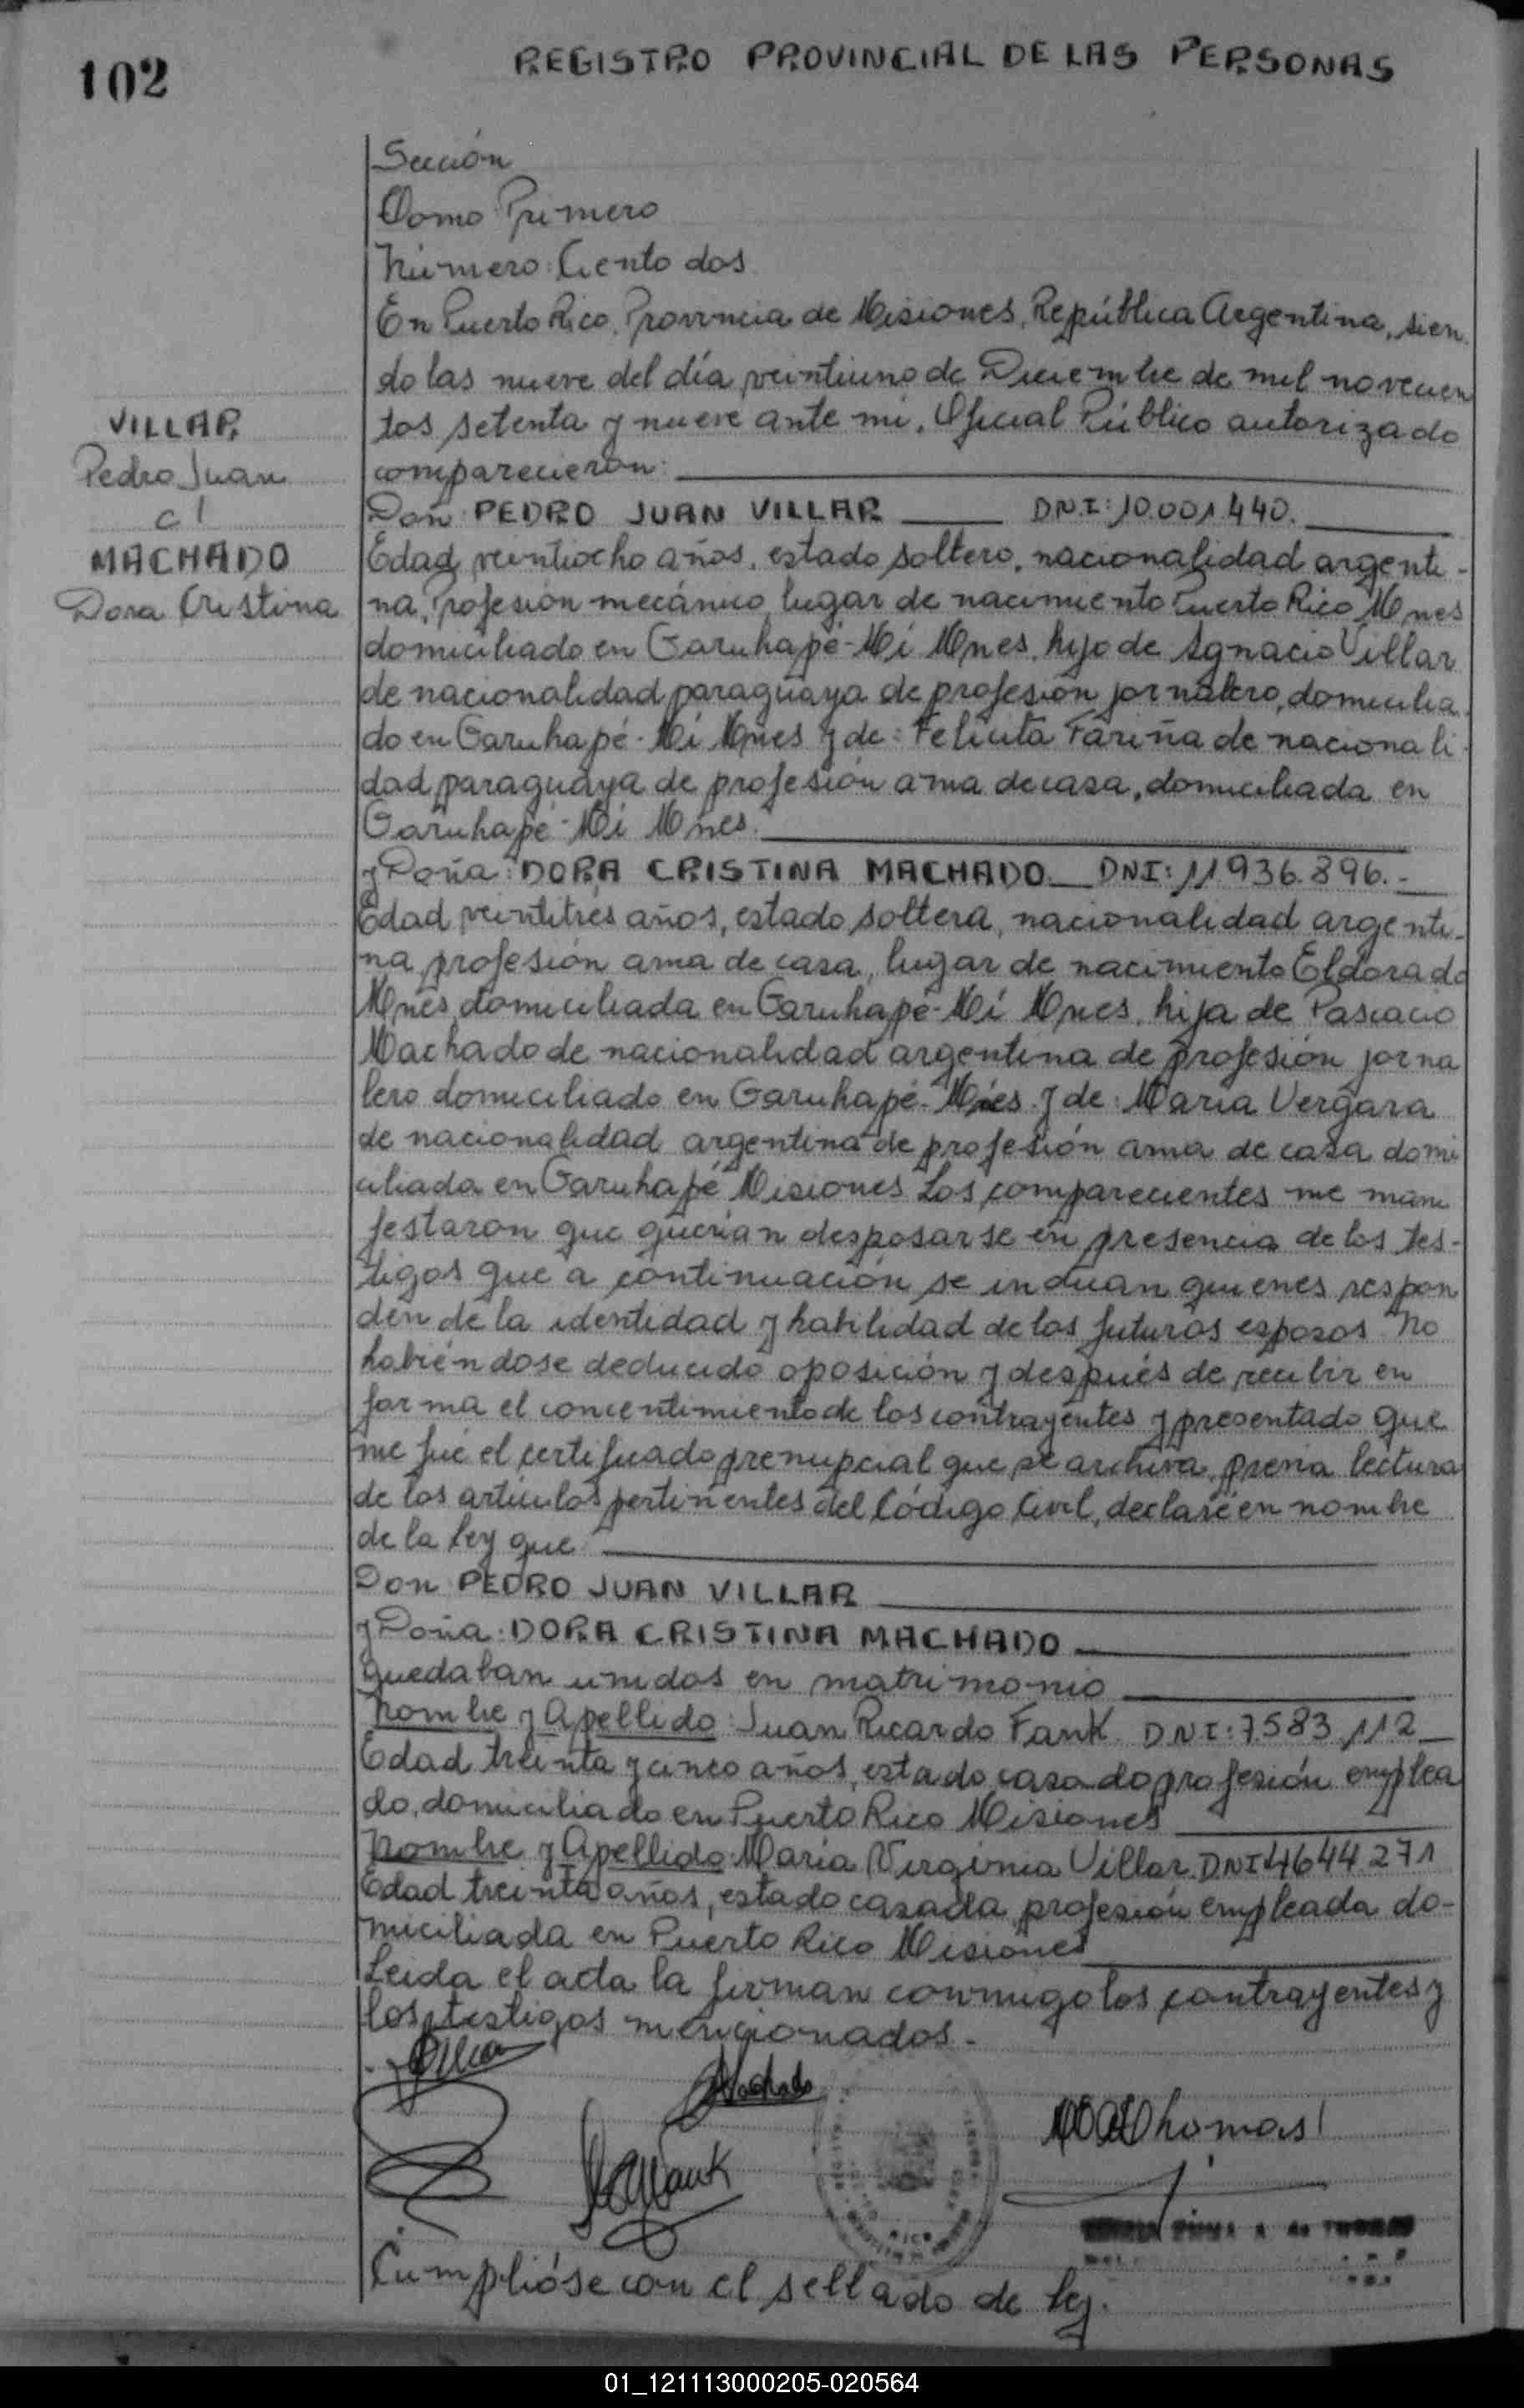 102
REGISTRO PROVINCIAL DE LAS PERSONAS
Sección
Tomo Primero
Número: Ciento dos
En Puerto Rico, Provincia de Misiones, República Argentina, sien-
do las nueve del día veintiuno de Diciembre de mil novecien
tos setenta y nueve ante mi, Oficial Público autorizado
comparecieron:
VILLAR
Pedro Juan
c/
MACHADO
Dora Cristina
Don: PEDRO JUAN VILLAR DNI: 10.001.440.
Edad veintiocho años, estado soltero, nacionalidad argenti-
na, Profesión mecánico, lugar de nacimiento Puerto Rico Mnes
domiciliado en Garuhapé-Mí Mnes, hijo de Ignacio Villar
de nacionalidad paraguaya de profesión jornalero, domicilia
do en Garuhapé-Mí Mnes y de: Felicita Fariña de nacionali
dad paraguaya de profesión ama de casa, domiciliada en
Garuhapé-Mí Mnes.
y Doña: DORA CRISTINA MACHADO DNI: 11936.896.-
Edad veintitrés años, estado soltera, nacionalidad argenti-
na, profesión ama de casa, lugar de nacimiento Eldorado
Mnes, domiciliada en Garuhapé-Mí Mnes, hija de Pascacio
Machado de nacionalidad argentina de profesión jorna
lero domiciliado en Garuhapé-Mnes y de: María Vergara
de nacionalidad argentina de profesión ama de casa domi
ciliada en Garuhapé Misiones Los comparecientes me mani
festaron que querían desposarse en presencia de los tes-
tigos que a continuación se indican quienes respon
den de la identidad y habilidad de los futuros esposos No
habiéndose deducido oposición y después de recibir en
forma el concentimiento de los contrayentes y presentado que
me fué el certificado prenupcial que se archiva, previa lectura
de los artículos pertinentes del Código Civil, declaré en nombre
de la Ley que
Don PEDRO JUAN VILLAR
y Doña: DORA CRISTINA MACHADO
quedaban unidos en matrimonio
Nombre y Apellido: Juan Ricardo Fank. DNI: 7583.112
Edad treinta y cinco años, estado casado profesión emplea
do, domiciliado en Puerto Rico Misiones
Nombre y Apellido: María Virginia Villar. DNI 4644.271
Edad treinta años, estado casada, profesión empleada do-
miciliada en Puerto Rico Misiones
Leida el acta la firman conmigo los contrayentes y
los testigos mencionados.-
Machado
Fank
Thomas
RICO
Cumplióse con el sellado de Ley.
01_121113000205-020564